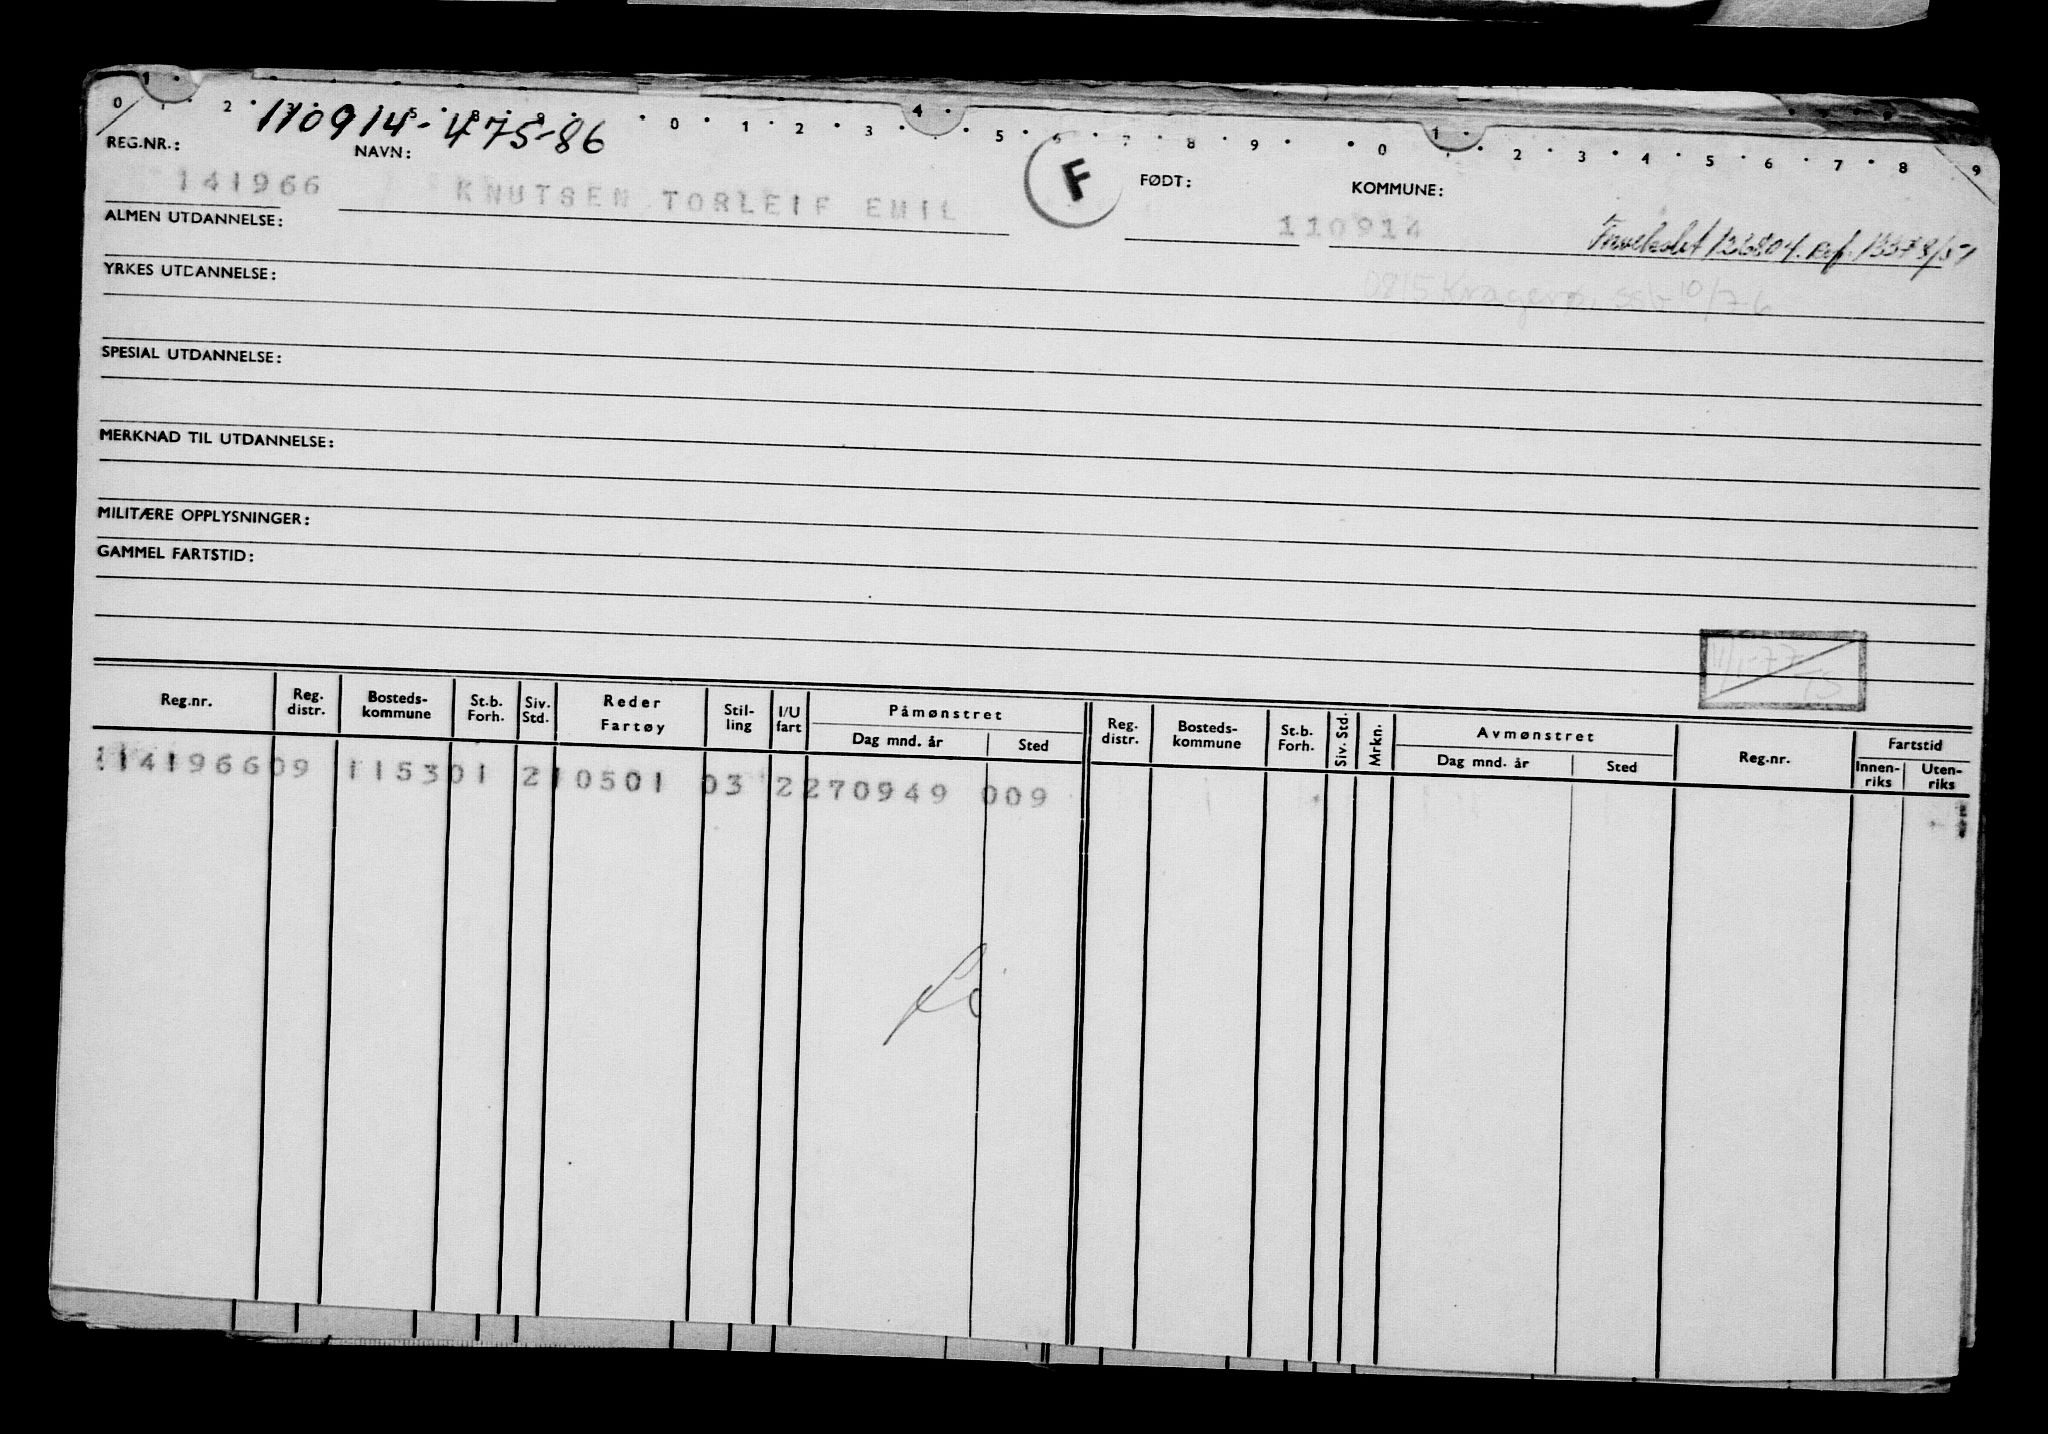 0 1 . 2 . 3 . 5 . 8 . 9 . . 0 . 1 . 2 . 3 . 4 . 5 6 . 7 . 8 . 9 . . 0 1 . 2 . 3 . 4 . 5 . 6 . 7 . 8 . 9
110914-475-86
REG.NR.: NAVN: FØDT: KOMMUNE:
141966 KNUTSEN TORLEIF EMIL F 110914
126804. Ref. 13378/51
ALMEN UTDANNELSE:
YRKES UTDANNELSE:
0815 Kragerø 10/7-6
SPESIAL UTDANNELSE:
MERKNAD TIL UTDANNELSE:
MILITÆRE OPPLYSNINGER:
GAMMEL FARTSTID:
11/1-77
Reg.nr. Reg. distr. Bosteds-kommune St.b. Forh. Siv. Std. Reder Fartøy Stil-ling I/U fart Påmønstret Dag mnd. år Sted Reg. distr. Bosteds-kommune St.b. Forh. Siv. Std. Mrkn. Avmønstret Dag mnd. år Sted Reg.nr. Fartstid Innen-riks Uten-riks
114196609 115301 210501 03 2270949 009